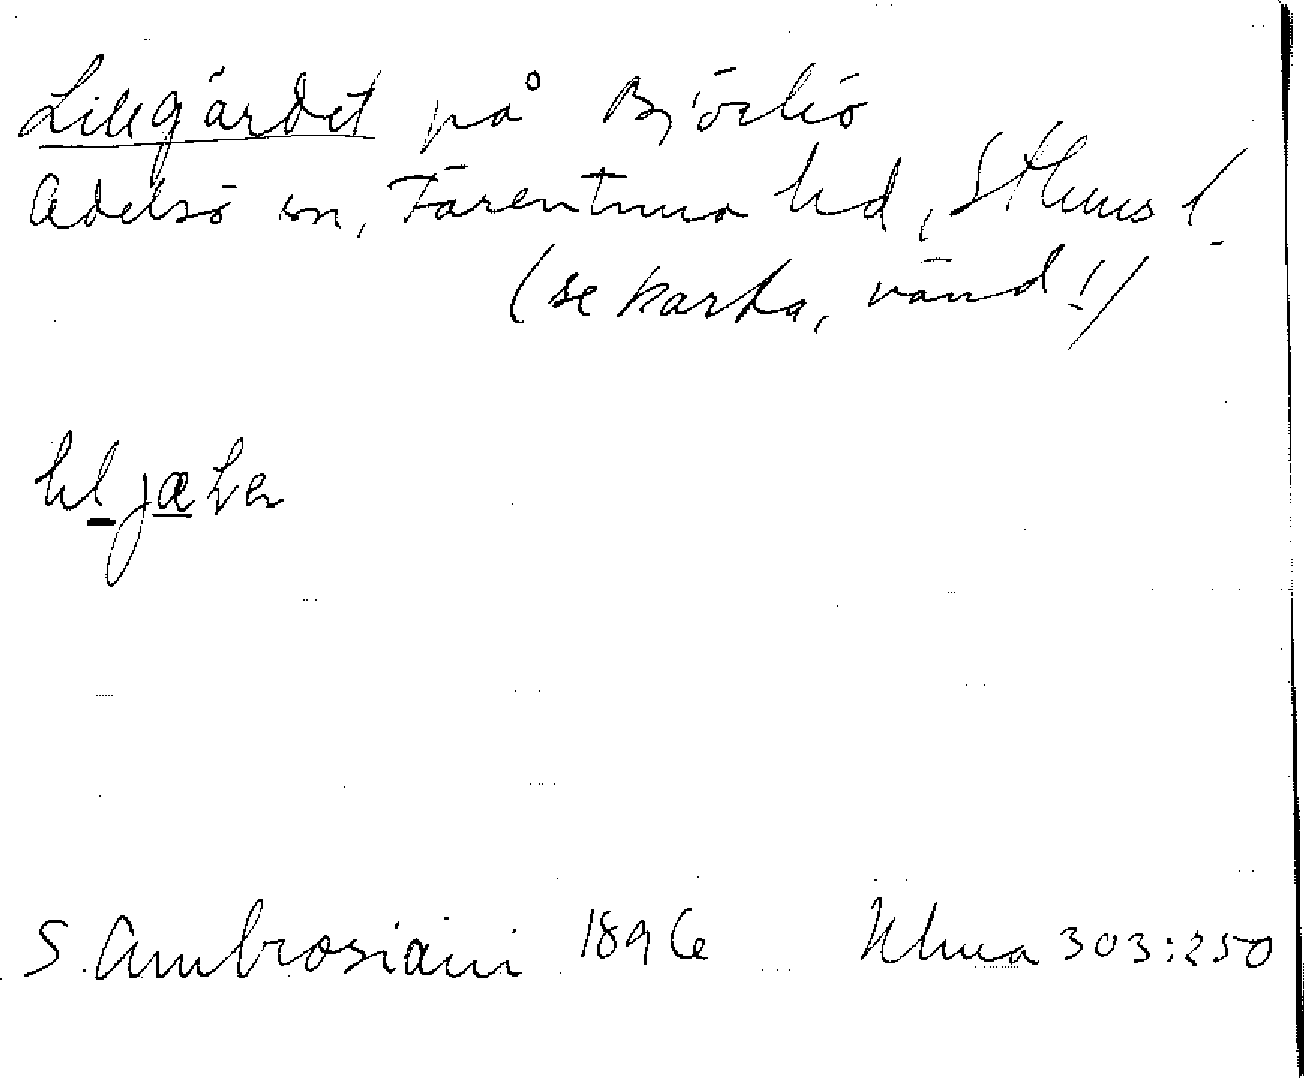 Lillgärdet på Björkö
Adelsö sn, Färentuna hd, Sthms l.
(se karta, vänd!)
S. Ambrosiani 1896 Uhma 303:250